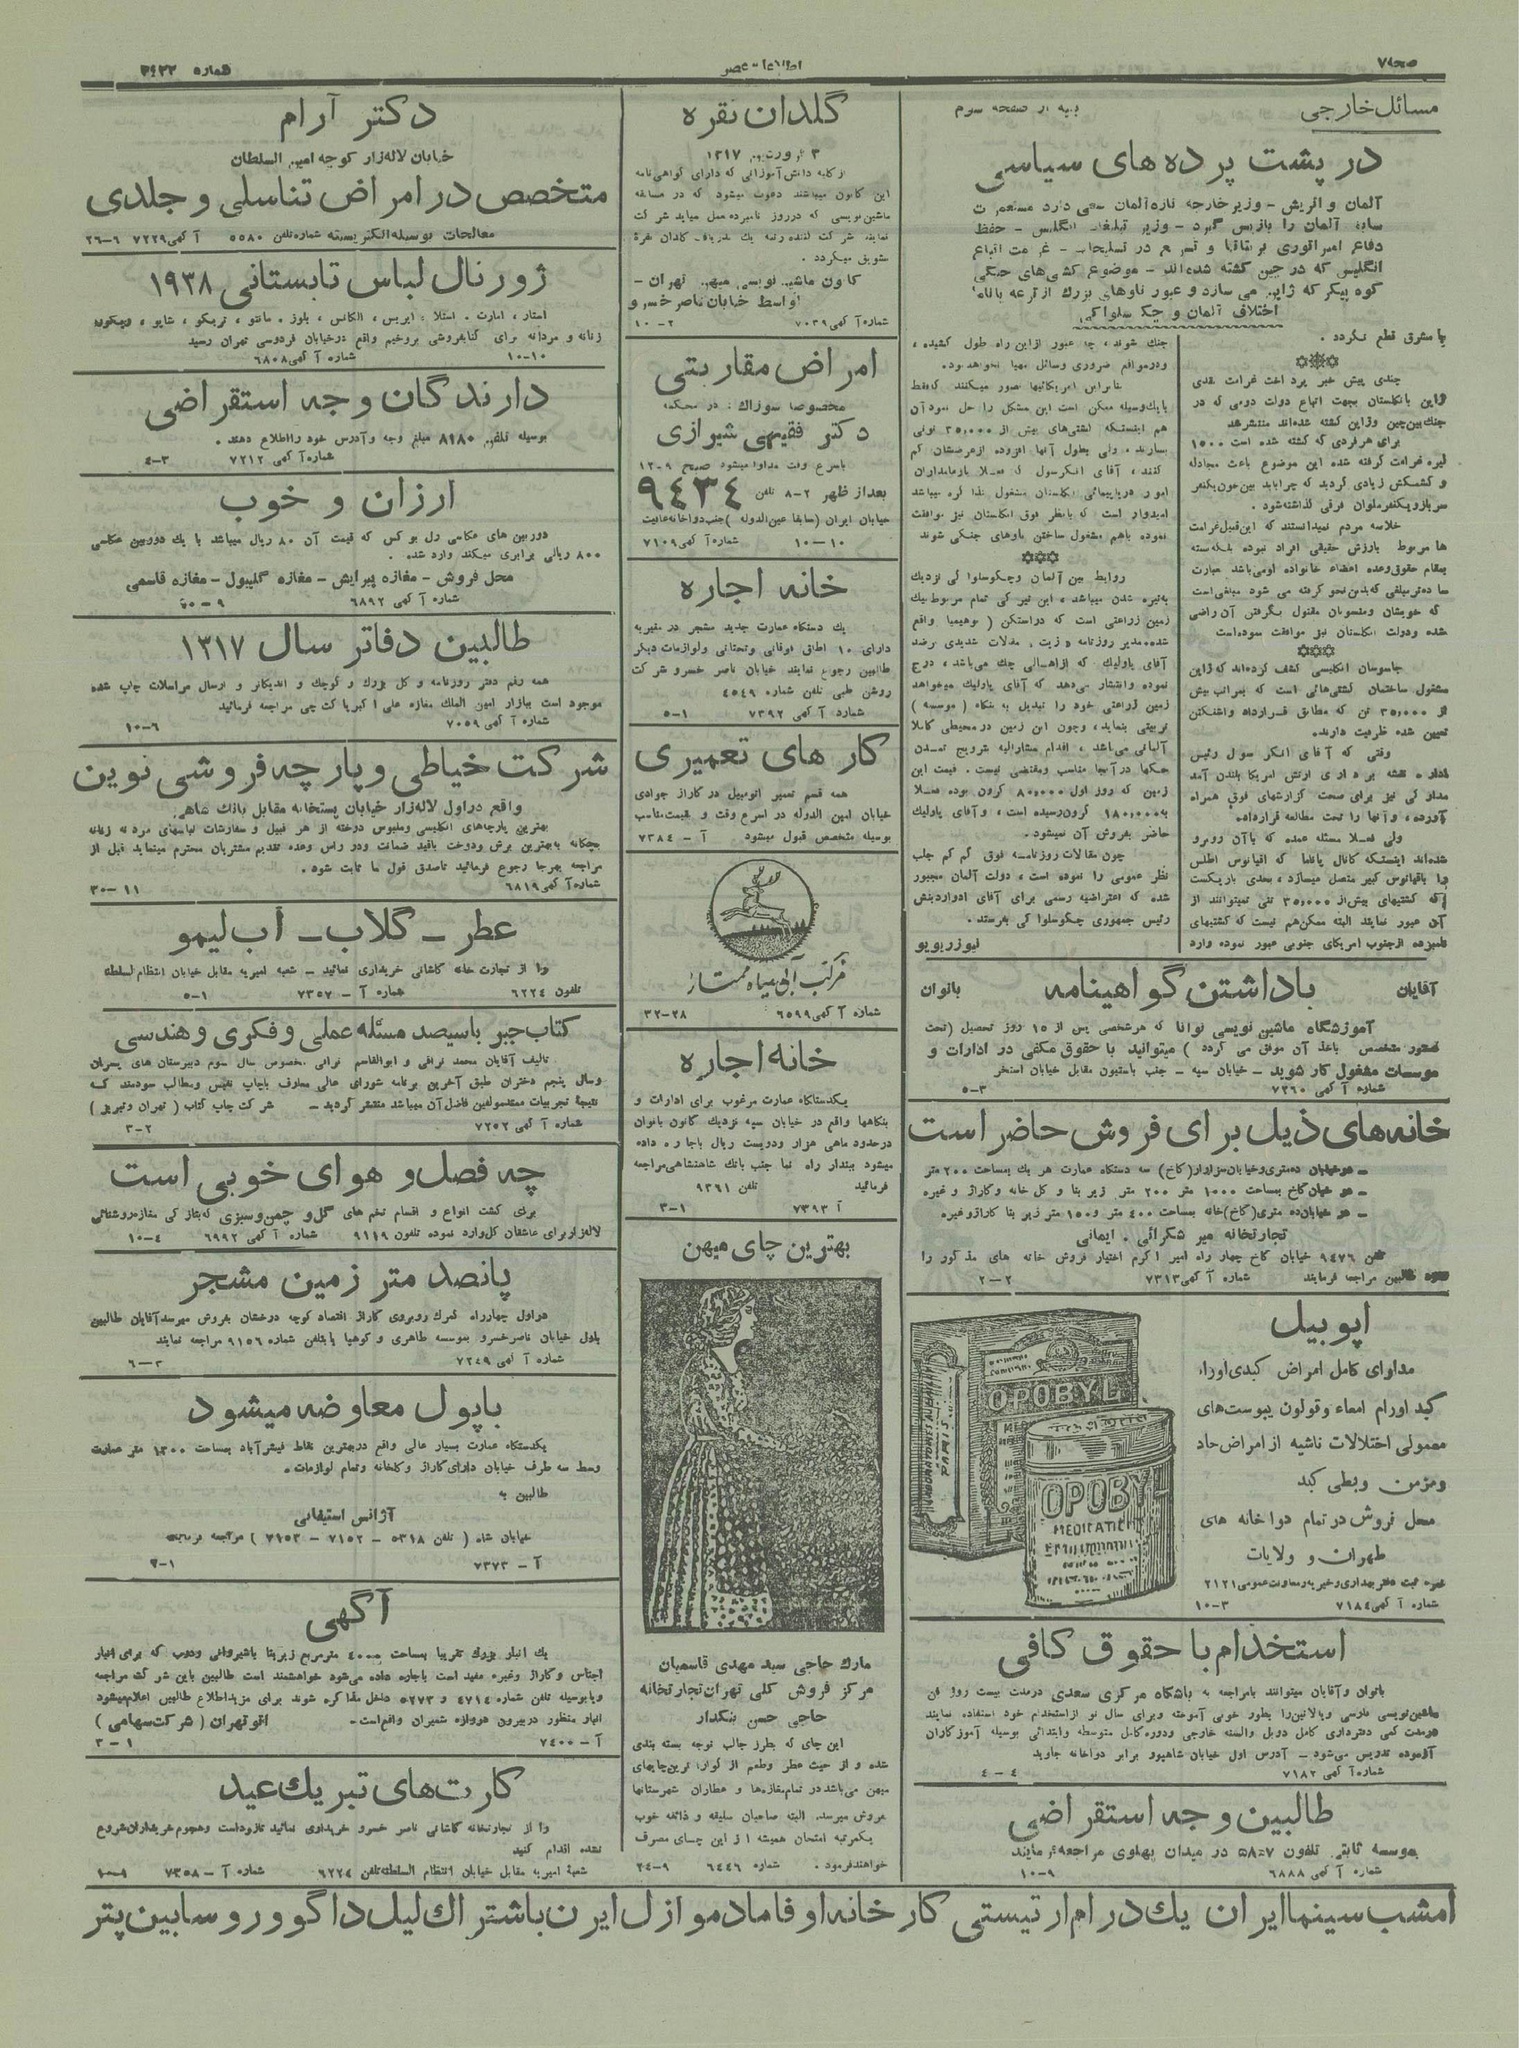 صفحه ۷
اطلاعات عصر
شماره
مسائل خارجی
بقیه از صفحه سوم
در پشت پرده های سیاسی
آلمان و اتریش - وزیر خارجه تازه آلمان سعی دارد مستعمرات
سابق آلمان را بازپس گیرد - وزیر تبلیغات انگلیس - حفظ
دفاع امپراتوری بریتانیا و تسریع در تسلیحات - غرامت اتباع
انگلیس که در چین کشته شده‌اند - موضوع کشتی‌های جنگی
کوه پیکر که ژاپن می سازد و عبور ناوهای بزرگ از ترعه پاناما
اختلاف آلمان و چکوسلواکی
با مشرق قطع نگردد .
چندی پیش خبر پرداخت غرامت نقدی
ژاپن بانگلستان بجهت اتباع دولت دومی که در
جنگ بین چین و ژاپن کشته شده‌اند منتشر شد
برای هر فردی که کشته شده است ۱۵۰۰
لیره غرامت گرفته شده این موضوع باعث مجادله
و کشمکش زیادی گردید که چرا باید بین خون یکنفر
سرباز و یکنفر ملوان فرقی گذاشته شود .
خلاصه مردم نمیدانستند که این قبیل غرامت
ها مربوط بارزش حقیقی افراد نبوده بلکه بسته
بمقام حقوق و عده اعضاء خانواده او می باشد عبارت
ساده‌تر مبلغی که بدین نحو گرفته می شود مبلغی است
که خویشان و منسوبان مقتول بگرفتن آن راضی
شده و دولت انگلستان نیز موافقت نموده است
جاسوسان انگلیسی کشف کرده‌اند که ژاپن
مشغول ساختمان کشتی‌هائی است که بمراتب بیش
از ۳۵,۰۰۰ تن که مطابق قرارداد واشنگتن
تعیین شده ظرفیت دارند.
وقتی که آقای انگرسول رئیس
اداره نقشه برداری ارتش امریکا بلندن آمد
مدارکی نیز برای صحت گزارشهای فوق همراه
آورده ، و آنها را تحت مطالعه قرار داد.
ولی فعلا مسئله عمده که با آن روبرو
شده‌اند اینستکه کانال پاناما که اقیانوس اطلس
را باقیانوس کبیر متصل میسازد ، بعدی باریکست
که کشتیهای بیش از ۳۵,۰۰۰ تنی نمیتوانند از
آن عبور نمایند البته ممکن هم نیست که کشتیهای
نامبرده از جنوب امریکای جنوبی عبور نموده وارد
جنگ شوند ، چه عبور از این راه طول کشیده ،
و در مواقع ضروری وسائل مهیا نخواهد بود.
بنابراین امریکائیها تصور میکنند که فقط
بایک وسیله ممکن است این مشکل را حل نمود آن
هم اینستکه کشتی‌های بیش از ۳۵,۰۰۰ تونی
بسازند ، ولی بطول آنها افزوده از عرضشان کم
کنند ، آقای انگرسول که فعلا با زمامداران
امور دریاپیمائی انگلستان مشغول مذاکره میباشد
امیدوار است که با نظر فوق انگلستان نیز موافقت
نموده باهم مشغول ساختن ناوهای جنگی شوند
روابط بین آلمان و چکوسلواکی نزدیک
بتیره شدن میباشد ، این تیرگی تمام مربوط بیک
زمین زراعتی است که در استکن ( بوهیمیا واقع
شده. مدیر روزنامه « زیت » مقالات شدیدی بر ضد
آقای پاولیک که از اهالی چک می‌باشد ، درج
نموده و انتشار می‌دهد که آقای پاولیک میخواهد
زمین زراعتی خود را تبدیل به بنگاه ( موسسه )
تربیتی بنماید ، و چون این زمین در محیطی کاملا
آلمانی می‌باشد ، اقدام مشارالیه بترویج تمدن
چکها در آنجا مناسب و مقتضی نیست . قیمت این
زمین که روز اول ۸۰,۰۰۰ کرون بوده فعلا
به ۱۸۰,۰۰۰ کرون رسیده است ، و آقای پاولیک
حاضر بفروش آن نمیشود.
چون مقالات روزنامه فوق کم کم جلب
نظر عمومی را نموده است ، دولت آلمان مجبور
شده که اعتراضیه رسمی برای آقای ادوارد بنش
رئیس جمهوری چکوسلواکی بفرستد.
نیوز ریویو
آقایان
باداشتن گواهینامه
بانوان
آموزشگاه ماشین نویسی توانا که هر شخصی پس از ۱۵ روز تحصیل (تحت
دستور متخصص باخذ آن موفق می گردد ) میتوانید با حقوق مکفی در ادارات و
موسسات مشغول کار شوید - خیابان سپه - جنب باستیون مقابل خیابان استخر
شماره آگهی ۷۳۶۰
۳-۵
خانه‌های ذیل برای فروش حاضر است
- در خیابان ده متری و خیابان سزاوار (کاخ) سه دستگاه عمارت هر یک بمساحت ۲۰۰ متر
- در خیابان کاخ بمساحت ۱۰۰۰ متر ۲۰۰ متر زیر بنا و گل خانه و گاراژ و غیره
- در خیابان ده متری (کاخ) خانه بمساحت ۴۰۰ متر و ۱۵۰ متر زیر بنا گاراژ و غیره
تجارتخانه میر شکرائی . ایمانی
تلفن ۹۴۷۶ خیابان کاخ چهار راه امیر اکرم اختیار فروش خانه های مذکور را
دارد طالبین مراجعه فرمایند
شماره آگهی ۷۳۱۳
۲-۲
اپوبیل
مداوای کامل امراض کبدی اورام
کبد اورام امعاء و قولون یبوست‌های
معمولی اختلالات ناشیه از امراض حاد
و مزمن و بطی کبد
محل فروش در تمام دواخانه های
طهران و ولایات
نمره ثبت دفتر بهداری و خیریه و معاونت عمومی ۲۱۲۱
شماره آگهی ۷۱۸۴
۳-۱۰
OPOBYL
PARIS
OPOBYL
MEDICATION
استخدام با حقوق کافی
بانوان و آقایان میتوانند بامراجعه به باشگاه مرکزی سعدی در مدت بیست روز فن
ماشین نویسی فارسی و یا لاتین را بطور خوبی آموخته و برای سال نو از استخدام خود استفاده نمایند
در مدت کمی دفترداری کامل دوبل و السنه خارجی و دوره کامل متوسطه و ابتدائی بوسیله آموزگاران
آزموده تدریس می‌شود - آدرس اول خیابان شاهپور برابر دواخانه جاوید
شماره آگهی ۷۱۸۲
۴-۴
طالبین وجه استقراضی
بموسسه ثابتی تلفون ۵۸۰۷ در میدان پهلوی مراجعه فرمایند
شماره آگهی ۶۸۸۸
۹-۱۰
گلدان نقره
۳ فروردین ۱۳۱۷
از کلیه دانش آموزانی که دارای گواهی نامه
این کانون میباشند دعوت میشود که در مسابقه
ماشین نویسی که در روز نامبرده بعمل میاید شرکت
نمایند شرکت کننده رتبه یک بدریافت گلدان نقره
تشویق میگردد .
کانون ماشین نویسی میهن تهران -
اواسط خیابان ناصر خسرو
شماره آگهی ۷۰۳۹
۲-۱۰
امراض مقاربتی
مخصوصا سوزاک ، در محکمه
دکتر فقیهی شیرازی
باسرع وقت مداوا میشود صبح ۹-۱۲
بعداز ظهر ۲-۸ تلفن ۹۴۳۴
خیابان ایران (سابقا عین الدوله ) جنب دواخانه عافیت
شماره آگهی ۷۱۰۹
۱۰-۱۰
خانه اجاره
یک دستگاه عمارت جدید مشجر در منیریه
دارای ۱۰ اطاق فوقانی و تحتانی و لوازمات دیگر
طالبین رجوع نمایند خیابان ناصر خسرو شرکت
روشن طبی تلفن شماره ۴۵۴۹
شماره آگهی ۷۳۹۲
۱-۵
کار های تعمیری
همه قسم تعمیر اتومبیل در گاراژ جوادی
خیابان امین الدوله در اسرع وقت و قیمت مناسب
بوسیله متخصص قبول میشود
آ - ۷۳۸۴
مرکب آبی سیاه ممتاز
شماره آگهی ۶۵۹۹
۲۸-۳۲
خانه اجاره
یکدستگاه عمارت مرغوب برای ادارات و
بنگاهها واقع در خیابان سپه نزدیک کانون بانوان
در حدود ماهی هزار و دویست ریال باجاره داده
میشود ببندار راه نما جنب بانک شاهنشاهی مراجعه
فرمائید
تلفن ۹۳۶۱
آ ۷۳۹۳
۱-۳
بهترین چای میهن
مارک حاجی سید مهدی قاسمیان
مرکز فروش کلی تهران تجارتخانه
حاجی حسن بنکدار
این چای که بطرز جالب توجه بسته بندی
شده و از حیث عطر و طعم از گواراترین چایهای
میهن می‌باشد در تمام مغازه‌ها و عطاران شهرستانها
بفروش میرسد. البته صاحبان سلیقه و ذائقه خوب
یکمرتبه امتحان همیشه از این چای مصرف
خواهند فرمود .
شماره ۶۴۴۶
۹-۲۴
دکتر آرام
خیابان لاله‌زار کوچه امین السلطان
متخصص در امراض تناسلی و جلدی
معالجات بوسیله الکتریسیته شماره تلفن ۵۵۸۰
آگهی ۷۲۲۹
۶-۲۶
ژورنال لباس تابستانی ۱۹۳۸
استار ، امارت . استلا ، ایریس ، الگانس ، بلوز . مانتو ، تریکو ، شاپو ،
زنانه و مردانه برای کتابفروشی بروخیم واقع در خیابان فردوسی تهران رسید
شماره آگهی ۶۸۰۸
۱۰-۱۰
دارندگان وجه استقراضی
بوسیله تلفن ۸۱۸۰ مبلغ وجه و آدرس خود را اطلاع دهند .
شماره آگهی ۷۲۱۲
۳-۴
ارزان و خوب
دوربین های عکاسی رل بوکس که قیمت آن ۸۰ ریال میباشد با یک دوربین عکاسی
۸۰۰ ریالی برابری میکند وارد شده .
محل فروش - مغازه پیرایش - مغازه گلیبول - مغازه قاسمی
شماره آگهی ۶۸۹۲
طالبین دفاتر سال ۱۳۱۷
همه رقم دفتر روزنامه و کل بزرگ و کوچک و اندیکاتر و ارسال مراسلات چاپ شده
موجود است ببازار امین الملک مغازه علی اکبر پاکت چی مراجعه فرمائید
شماره آگهی ۷۰۵۹
۶-۱۰
شرکت خیاطی و پارچه فروشی نوین
واقع در اول لاله‌زار خیابان پستخانه مقابل بانک شاهی
بهترین پارچه‌های انگلیسی و ملبوس دوخته از هر قبیل و سفارشات لباسهای مردانه زنانه
بچگانه با بهترین برش و دوخت باقید ضمانت و در راس وعده تقدیم مشتریان محترم مینماید قبل از
مراجعه بهرجا رجوع فرمائید تا صدق قول ما ثابت شود .
شماره آگهی ۶۸۱۹
۱۱-۳۰
عطر - گلاب - آب لیمو
را از تجارت خانه کاشانی خریداری نمائید - شعبه امیریه مقابل خیابان انتظام السلطنه
تلفون ۶۲۲۴
شماره آ - ۷۳۵۷
۱-۵
کتاب جبر با سیصد مسئله عملی و فکری و هندسی
تالیف آقایان محمد نراقی و ابوالقاسم نراقی مخصوص سال سوم دبیرستان های پسران
و سال پنجم دختران طبق آخرین برنامه شورای عالی معارف باچاپ نفیس و مطالب سودمند که
نتیجهٔ تجربیات ممتد مولفین فاضل آن میباشد منتشر گردید - شرکت چاپ کتاب ( تهران و تبریز )
شماره آگهی ۷۲۵۲
۲-۳
چه فصل و هوای خوبی است
برای کشت انواع و اقسام تخم های گل و چمن و سبزی که بتازگی مغازه روشنائی
لاله‌زار برای عاشقان گل وارد نموده تلفون ۹۱۱۹
شماره آگهی ۶۹۹۲
۴-۱۰
پانصد متر زمین مشجر
در اول چهارراه گمرک روبروی گاراژ اقتصاد کوچه درختان بفروش میرسد آقایان طالبین
باول خیابان ناصر خسرو بموسسه طاهری و کوهپا یا بتلفن شماره ۹۱۵۶ مراجعه نمایند
شماره آگهی ۷۲۴۹
۳-۶
باپول معاوضه میشود
یکدستگاه عمارت بسیار عالی واقع در بهترین نقاط فیشرآباد بمساحت ۱۳۰۰ متر عمارت
وسط سه طرف خیابان دارای گاراژ و گلخانه و تمام لوازمات .
طالبین به
آژانس استیفائی
خیابان شاه ( تلفن ۵۳۱۸ - ۷۱۵۲ - ۷۱۵۳ ) مراجعه فرمایند
آ - ۷۳۷۳
آگهی
یک انبار بزرگ تقریبا بمساحت ۴۰۰۰ مترمربع زیربنا باشیروانی و درب که برای انبار
اجناس و گاراژ و غیره مفید است باجاره داده می‌شود خواهشمند است طالبین باین شرکت مراجعه
و یا بوسیله تلفن شماره ۴۷۱۴ و ۵۲۷۳ داخل مذاکره شوند برای مزید اطلاع طالبین اعلام میشود
انبار منظور در بیرون دروازه شمیران واقع است .
اتو تهران ( شرکت سهامی )
آ - ۷۴۰۰
۱-۳
کارت‌های تبریک عید
را از تجارتخانه کاشانی ناصر خسرو خریداری نمائید تا زود است و هجوم خریداران شروع
نشده اقدام کنید
شعبهٔ امیریه مقابل خیابان انتظام السلطنه تلفن ۶۲۲۴
شماره آ - ۷۳۵۸
امشب سینما ایران یک درام ارتیستی کارخانه اوفا مادموازل ایرن باشتر اک لیل داگوور و سابین پتر